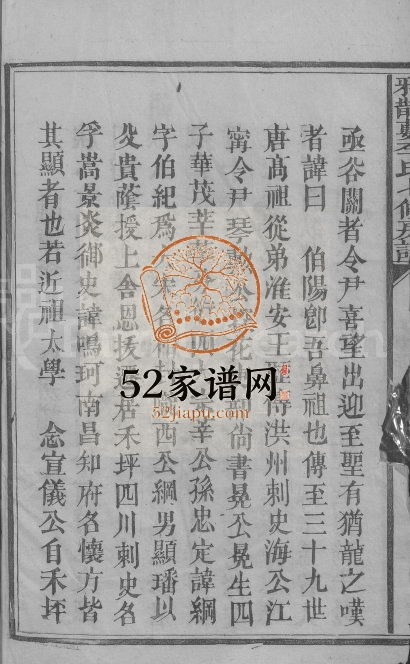 函谷關者令尹喜望出迎至聖有猶龍之嘆
者諱曰 伯陽卽吾鼻祖也傳至三十九世
唐高祖從弟淮安王 傳洪州刺史海公江
寗令尹琴 公 花 尙書晃公晃生四
子華茂苹 幸公孫忠定諱綱
字伯紀爲 宋名 西公綱男顯璠以
父貴蔭授上舍恩 居禾坪四川刺史名
孚嵩景炎御史諱鳴珂南昌知府名懷方皆
其顯者也若近祖太學 念宣儀公自禾坪
52家谱网
52jiapu.com